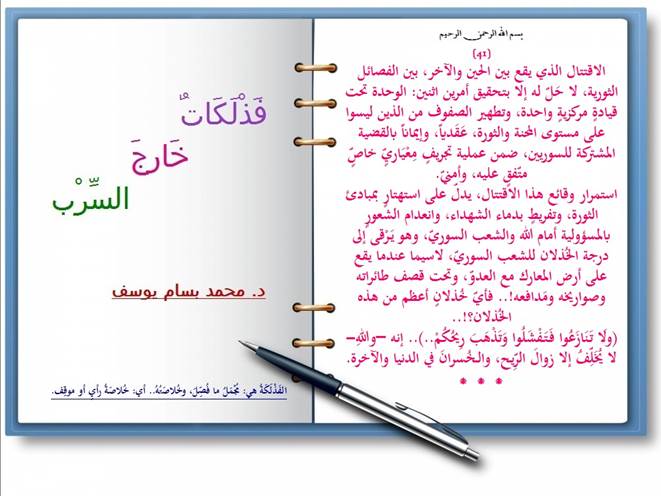 بسم الله الرحمن الرحيم
(41)
الاقتتال الذي يقع بين الحين والآخر، بين الفصائل
الثورية، لا حَلّ له إلا بتحقيق أمرين اثنين: الوحدة تحت
قيادةٍ مركزيةٍ واحدة، وتطهير الصفوف من الذين ليسوا
على مستوى المحنة والثورة، عَقَدياً، وإيماناً بالقضية
المشتركة للسوريين، ضمن عملية تجريفٍ مِعْيَاريّ خاصٍّ
متّفقٍ عليه، وأمنيّ.
استمرار وقائع هذا الاقتتال، يدلّ على استهتارٍ بمبادئ
الثورة، وتفريطٍ بدماء الشهداء، وانعدام الشعور
بالمسؤولية أمام الله والشعب السوريّ، وهو يَرْقى إلى
درجة الخُذلان للشعب السوريّ، لاسيما عندما يقع
على أرض المعارك مع العدوّ، وتحت قصف طائراته
وصواريخه ومَدافعه!.. فأيّ خُذلانٍ أعظم من هذه
الخُذلان؟!..
(ولَا تَنَازَعُوا فَتَفْشَلُوا وَتَذْهَبَ رِيحُكُمْ..).. إنه –والله–
لا يُخَلِّفُ إلا زوالَ الرِّيح، والـخُسرانَ في الدنيا والآخرة.
* * *
فَذْلَكَاتٌ
خَارِجَ
السِّرْب
د. محمد بسام يوسف
الفَذْلَكَةُ هي: مُجْمَلُ ما فُصِّلَ، وخُلاصَتُهُ.. أي: خُلاصَةُ رأيٍ أو موقِف.